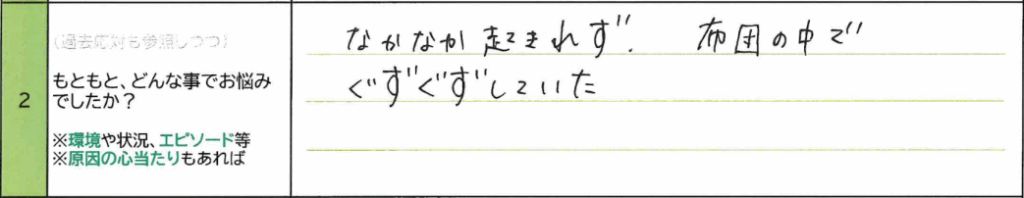 2
(過去応対も参照しつつ)
もともと、どんな事でお悩み
でしたか?
※環境や状況、エピソード等
※原因の心当たりもあれば
なかなか起きれず、布団の中で
ぐずぐずしていた